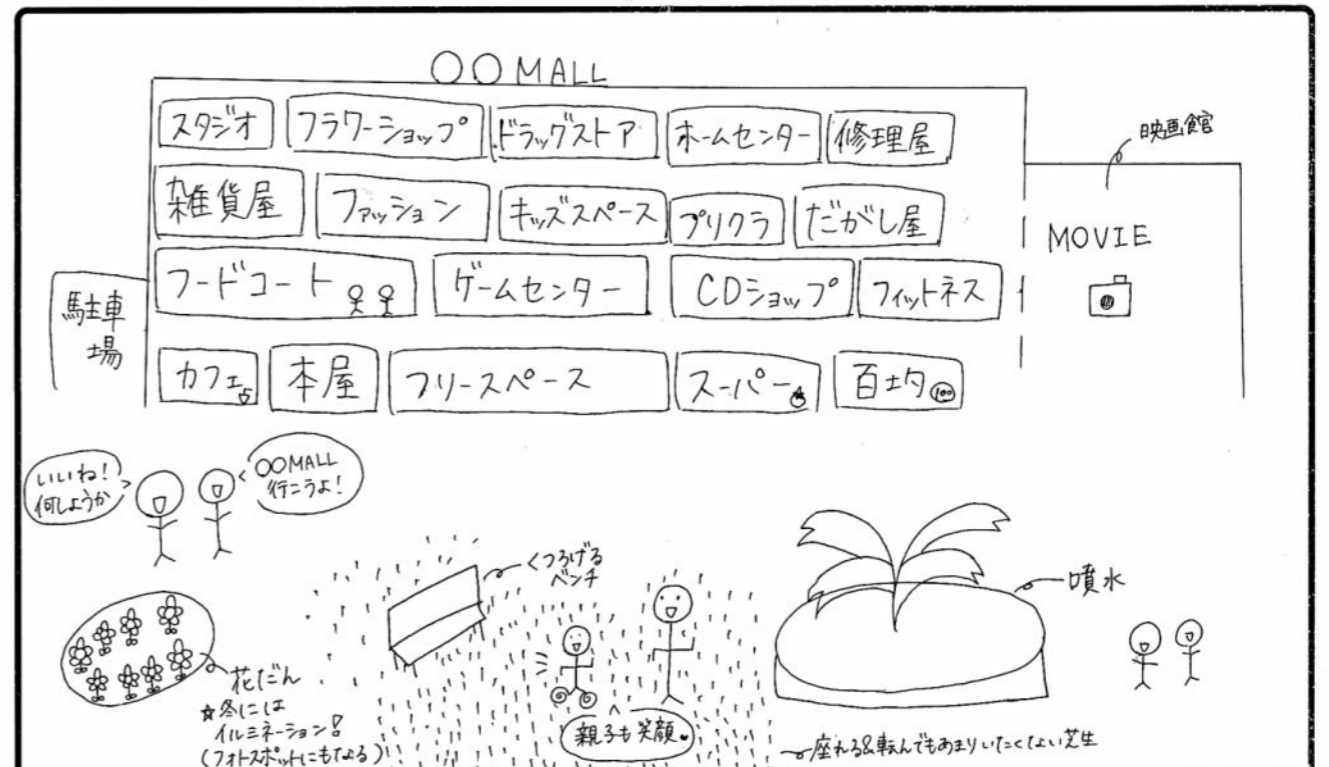 ○○MALL
スタジオ
フラワーショップ
ドラッグストア
ホームセンター
修理屋
映画館
雑貨屋
ファッション
キッズスペース
プリクラ
だがし屋
MOVIE
駐車
場
フードコート
ゲームセンター
CDショップ
フィットネス
カフェ
本屋
フリースペース
スーパー
百均
100
いいね!
何しようか
○○MALL
行こうよ!
くつろげる
ベンチ
噴水
花だん
☆冬には
イルミネーション!
(フォトスポットにもなる)
親子も笑顔
座れる&転んでもあまりいたくない芝生